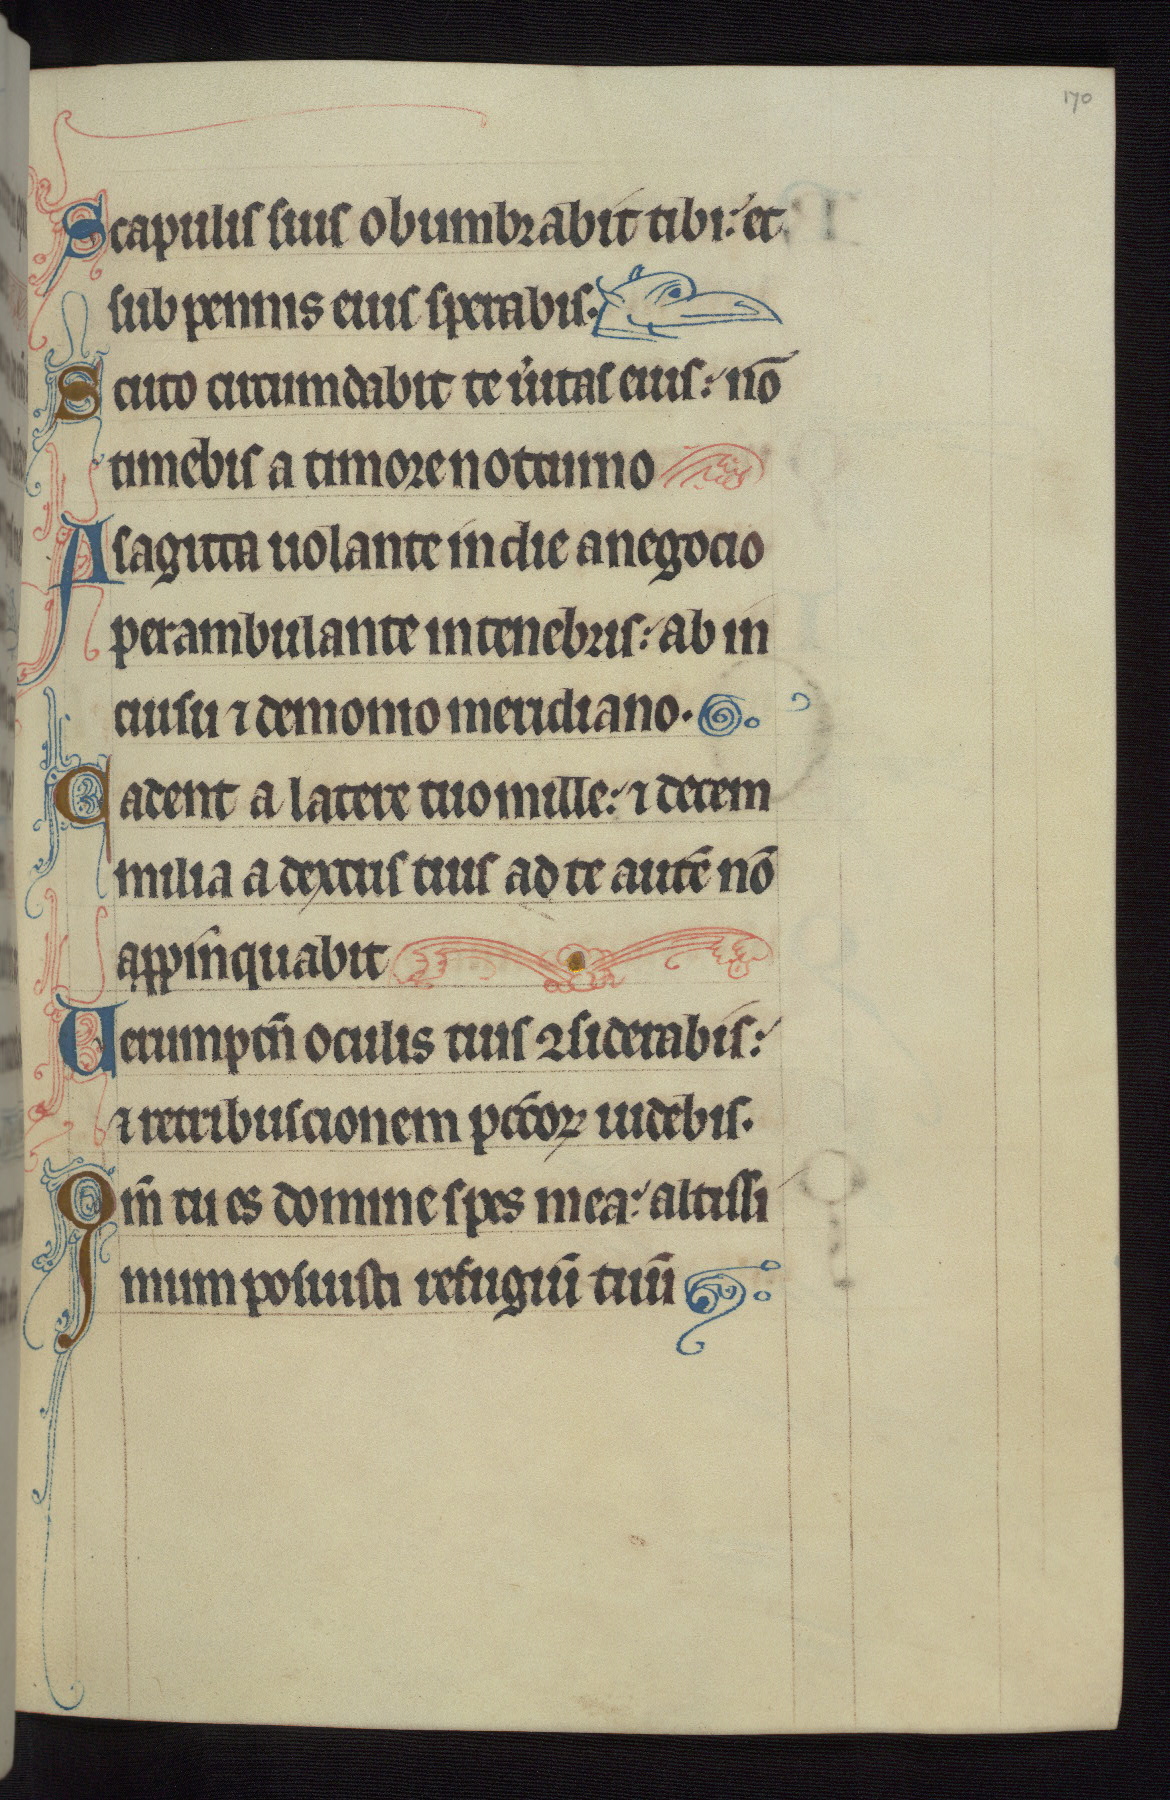 170
Scapulis suis obumbrabit tibi: et
sub pennis eius sperabis.
Scuto circumdabit te ùitas eius: nō
timebis a timore nocturno
A sagitta uolante in die a negocio
perambulante in tenebris: ab in
cursu ⁊ demonio meridiano.
Cadent a latere tuo mille: ⁊ decem
milia a dextris tuis ad te autē nō
appinquabit
Uerumptn̄ oculis tuis ꝯsiderabis:
⁊ retribuscionem pcc̄oꝝ uidebis.
Qm̄ tu es domine spes mea: altissi
mum posuisti refugiū tuū